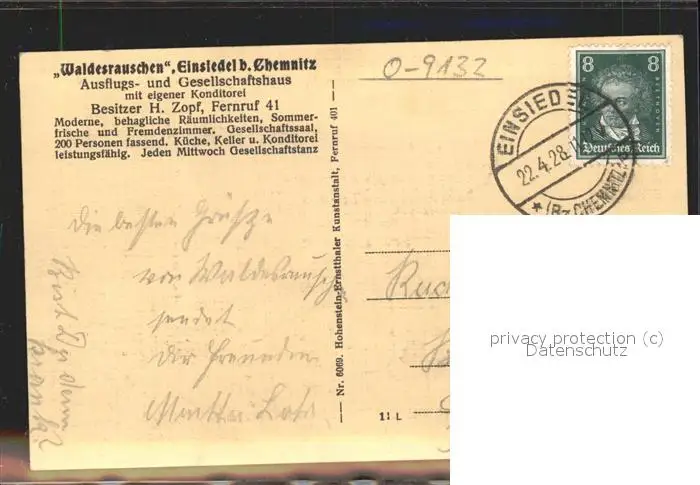 „Waldesrauschen“, Einsiedel b. Chemnitz
Ausflugs- und Gesellschaftshaus
mit eigener Konditorei
Besitzer H. Zopf, Fernruf 41
Moderne, behagliche Räumlichkeiten, Sommer-
frische und Fremdenzimmer. Gesellschaftssaal,
200 Personen fassend. Küche, Keller u. Konditorei
leistungsfähig. Jeden Mittwoch Gesellschaftstanz
Die besten Grüße
von Waldesrausch
sendet
Dir Freundin
Nr. 6069. Hohenstein-Ernstthaler Kunstanstalt, Fernruf 401
0-9132
8 8
BEETHOVEN
Deutsches Reich
EINSIEDEL
22.4.28
* (Bz CHEMNITZ)
11 L
privacy protection (c)
Datenschutz